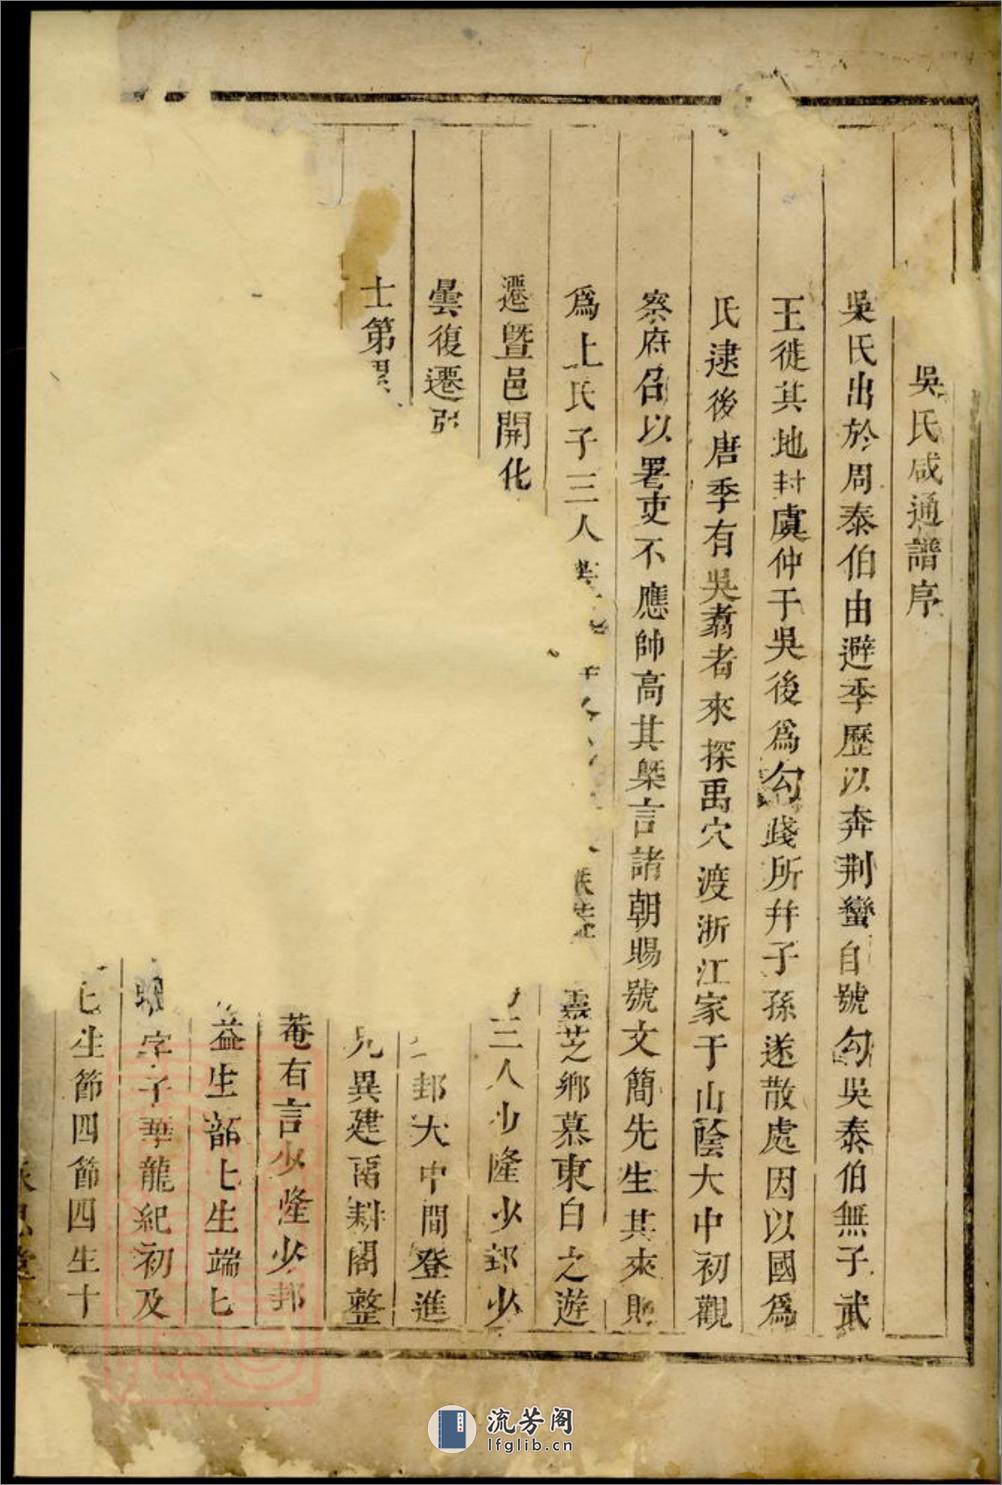 吳氏咸通譜序
吳氏出於周泰伯由避季歷以奔荆蠻自號勾吳泰伯無子武
王徙其地封虞仲于吳後爲勾踐所并子孫遂散處因以國爲
氏逮後唐季有吳翥者來探禹穴渡浙江家于山蔭大中初觀
察府召以署吏不應帥高其槩言諸朝賜號文簡先生其來
爲上氏子三人 芝鄉慕東白之遊
遷暨邑開化 三人少隆少邽少
曇復遷 邽大中間登進
士第 兄異建 閣整
菴有言少隆少邦
益生 七生端七
字子華龍紀初及
七生節四節四生十
流芳阁
lfglib.cn